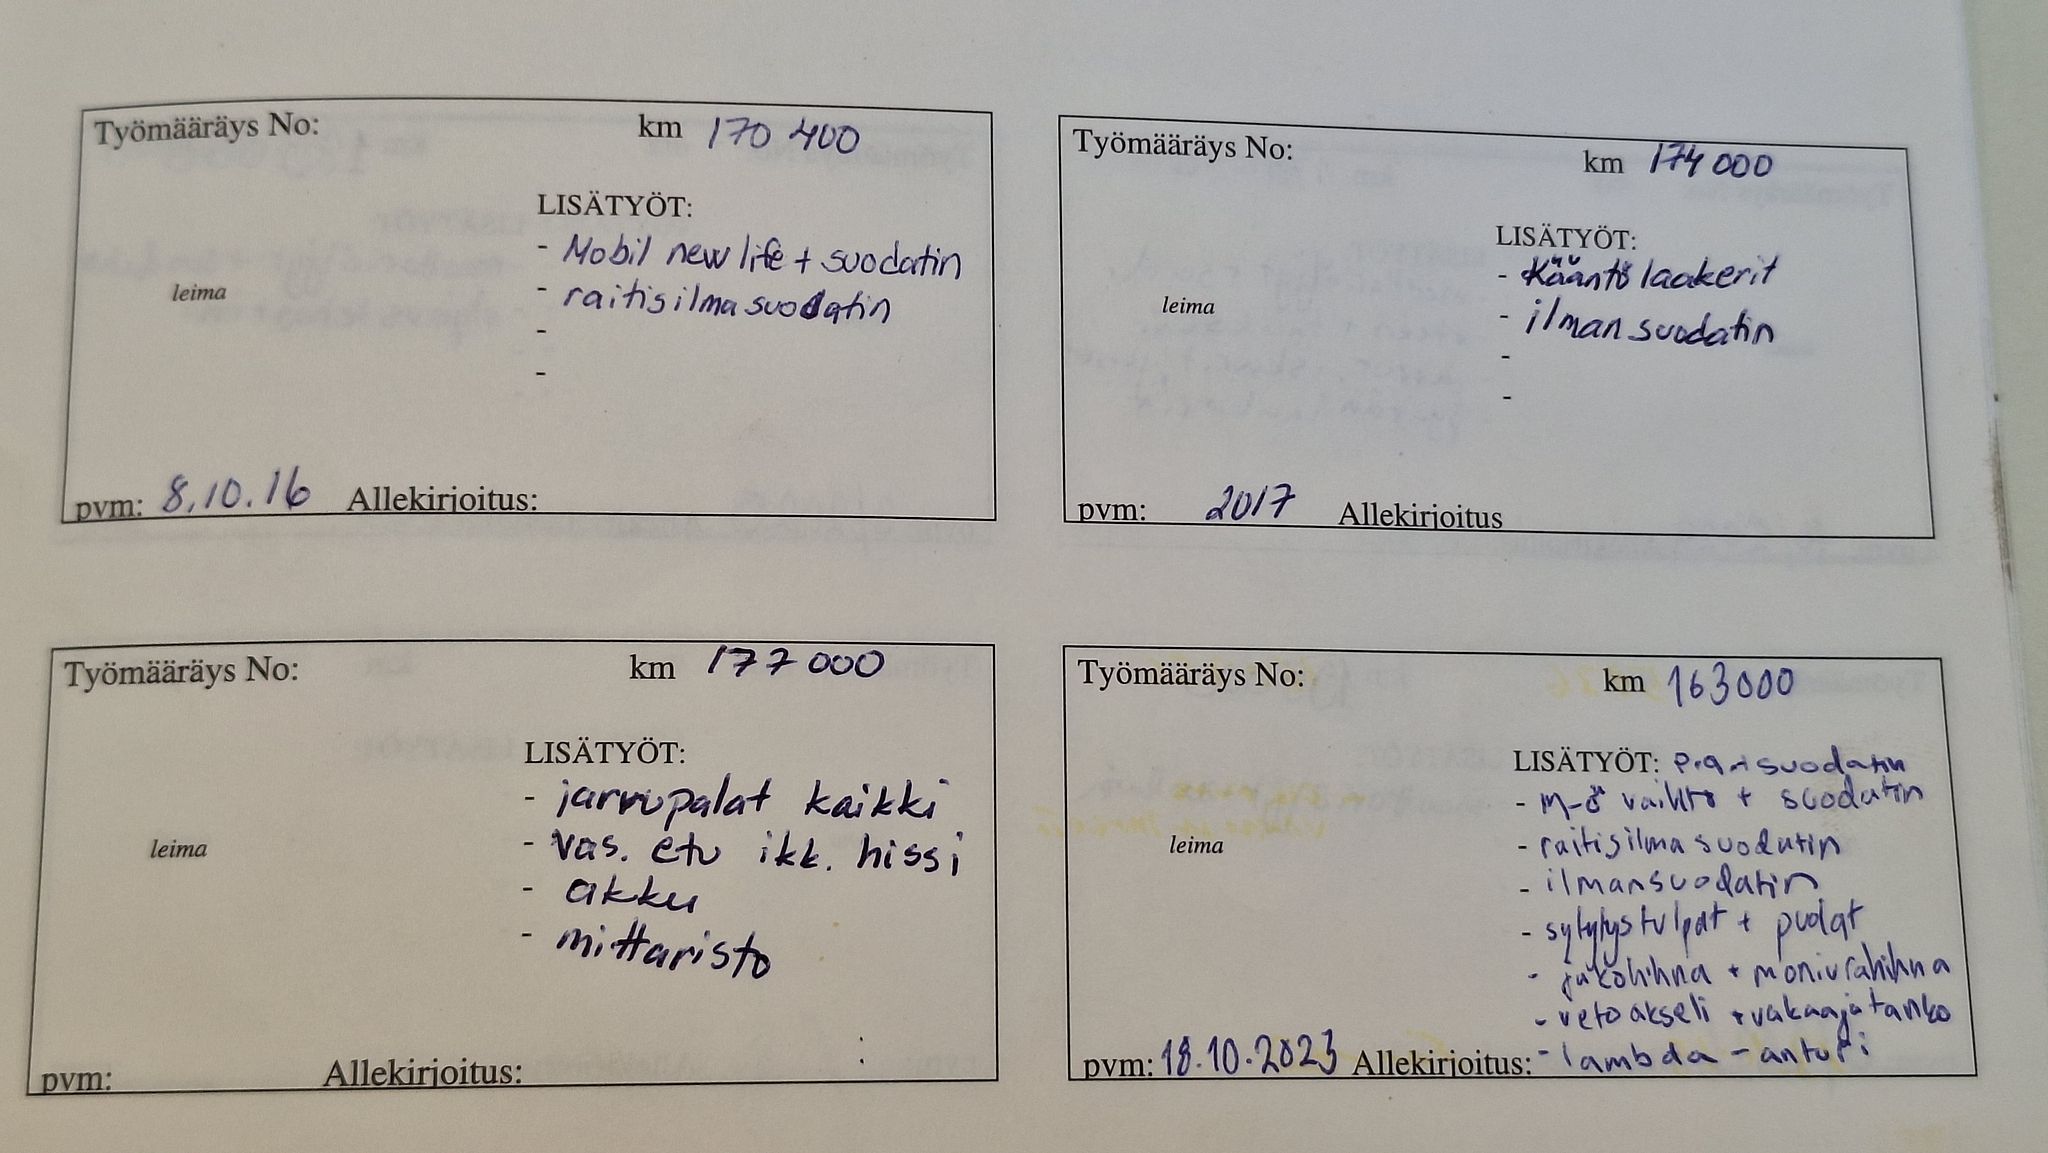 Työmääräys No: km 170 400
LISÄTYÖT:
- Mobil new life + suodatin
leima
- raitisilmasuodatin
-
-
pvm: 8.10.16 Allekirjoitus:
Työmääräys No: km 174 000
LISÄTYÖT:
- Kääntölaakerit
leima
- ilman suodatin
-
-
pvm: 2017 Allekirjoitus
Työmääräys No: km 177 000
LISÄTYÖT:
- jarrupalat kaikki
leima
- vas. etu ikk. hissi
- akku
- mittaristo
pvm: Allekirjoitus:
Työmääräys No: km 163000
LISÄTYÖT: p.a-suodatin
- m-ö vaihto + suodatin
leima
- raitisilmasuodatin
- ilmansuodatin
- sytytystulpat + puolat
- jakohihna + moniurahihna
- veto akseli + vakaajatanko
pvm: 18.10.2023 Allekirjoitus: - lambda - anturi